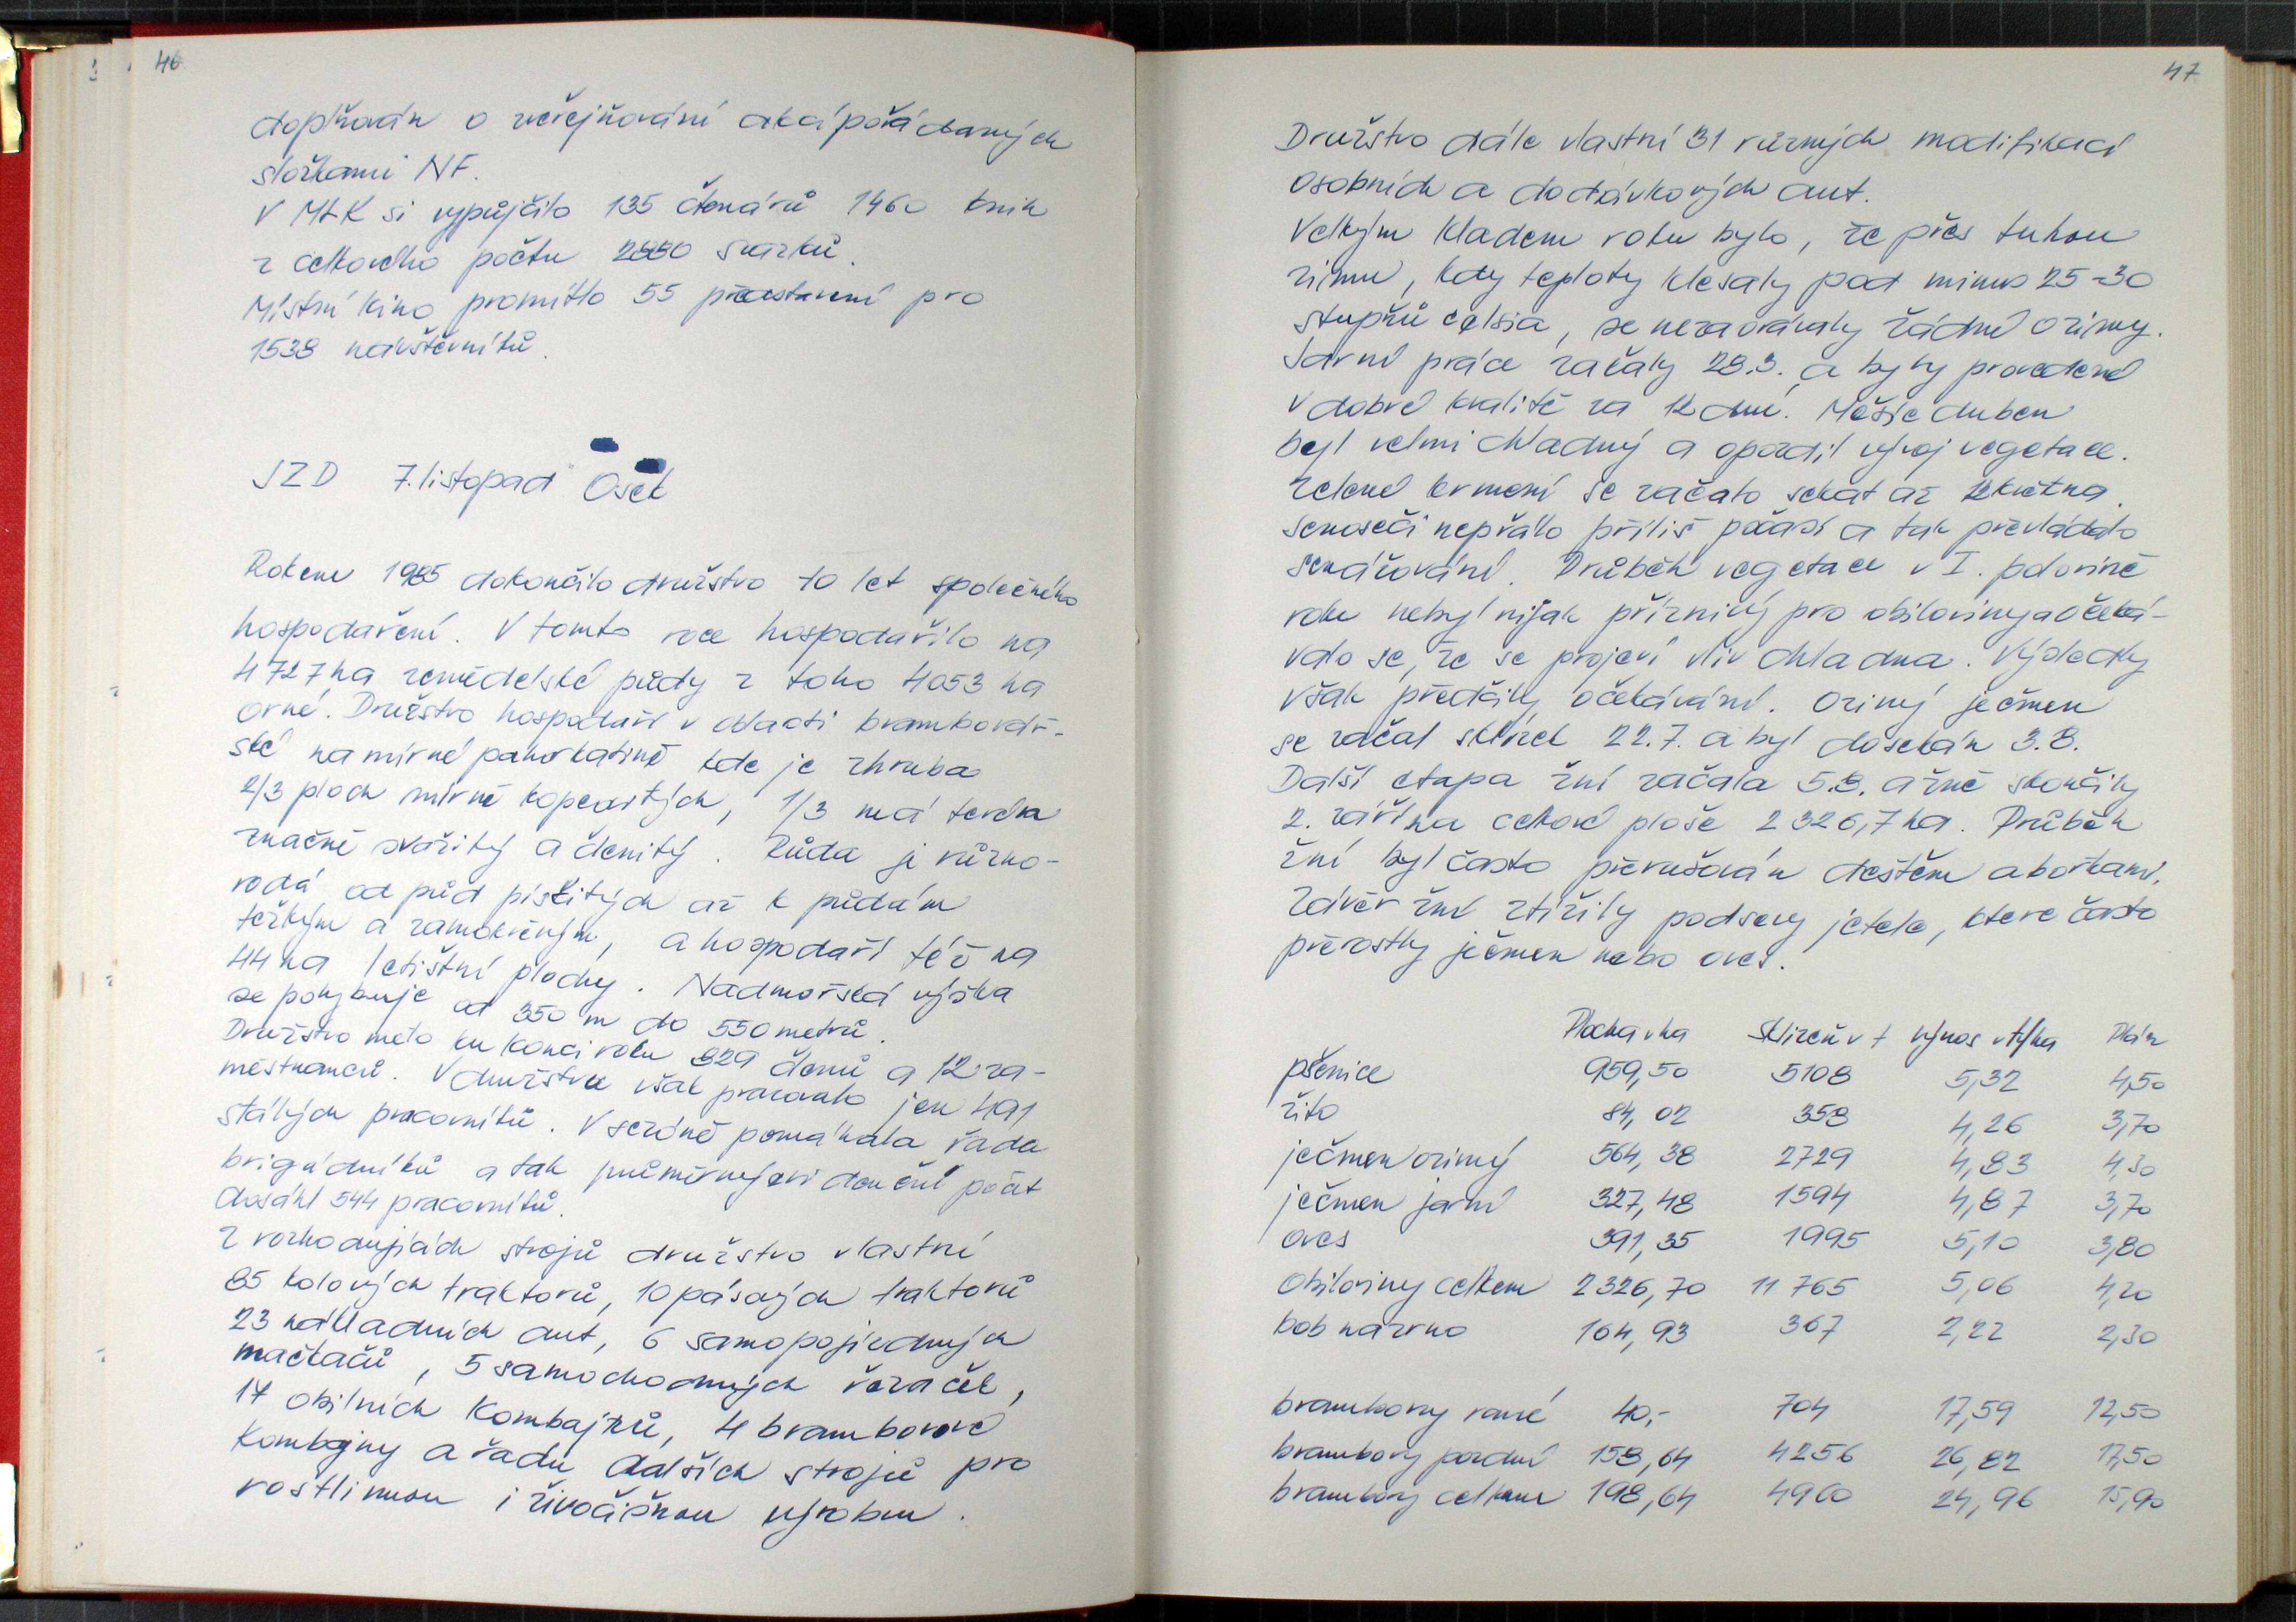 46
doplňován o zveřejňování akcí pořádaných
složkami NF.
V MLK si vypůjčilo 135 čtenářů 1460 knih
z celkového počtu 2880 svazků.
Místní kino promítlo 55 představení pro
1538 návštěvníků.
JZD 7. listopad Osek
Rokem 1985 dokončilo družstvo 10 let společného
hospodaření. V tomto roce hospodařilo na
4727 ha zemědělské půdy z toho 4053 ha
orné. Družstvo hospodaří v oblasti bramborář-
ské na mírné pahorkatině kde je zhruba
2/3 ploch mírně kopcovitých, 1/3 má terén
značně svažitý a členitý. Půda je různo-
rodá od půd písčitých až k půdám
težkým a zamokřeným, a hospodaří též na
44 ha letištní plochy. Nadmořská výška
se pohybuje od 350 m do 550 metrů.
Družstvo mělo ku konci roku 829 členů a 12 za-
městnanců. V družstvu však pracovalo jen 491
stálých pracovníků. V sezóně pomáhala řada
brigádníků a tak průměrný evidenční počet
dosáhl 544 pracovníků.
Z rozhodujících strojů družstvo vlastní
85 kolových traktorů, 10 pásových traktorů
23 nákladních aut, 6 samopojízdných
mačkačů, 5 samochodných řezaček,
17 obilních kombajnů, 4 bramborové
kombajny a řadu dalších strojů pro
rostlinnou i živočišnou výrobu.
47
Družstvo dále vlastní 31 různých modifikací
osobních a dodávkových aut.
Velkým kladem roku bylo, že přes tuhou
zimu, kdy teploty klesaly pod minus 25-30
stupňů celsia, se nezaorávaly žádné ozimy.
Jarní práce začaly 28.3. a byly provedené
v dobré kvalitě za 12 dní. Měsíc duben
byl velmi chladný a opozdil vývoj vegetace.
Zelené krmení se začalo sekat až 12 května.
Senoseči nepřálo příliš počasí a tak převládalo
senážování. Průběh vegetace v I. polovině
roku nebyl nijak příznivý pro obiloviny a očeká-
valo se, že se projeví vliv chladna. Výsledky
však předčily očekávání. Ozimý ječmen
se začal sklízet 22.7. a byl dosekán 3.8.
Další etapa žní začala 5.8. a žně skončily
2. září na celkové ploše 2326,7 ha. Průběh
žní byl často přerušován deštěm a bořkami.
Závěr žní ztížily podsevy jetele, které často
přerostly ječmen nebo oves.
Plocha v ha Sklizeň v t Výnos v t/ha Plán
pšenice 959,50 5108 5,32 4,50
žito 84,02 358 4,26 3,70
ječmen ozimý 564,38 2729 4,83 4,30
ječmen jarní 327,48 1594 4,87 3,70
oves 391,35 1995 5,10 3,80
obiloviny celkem 2326,70 11 765 5,06 4,20
bob na zrno 164,93 367 2,22 2,30
brambory rané 40,- 704 17,59 12,50
brambory pozdní 158,64 4256 26,82 17,50
brambory celkem 198,64 4960 24,96 15,90